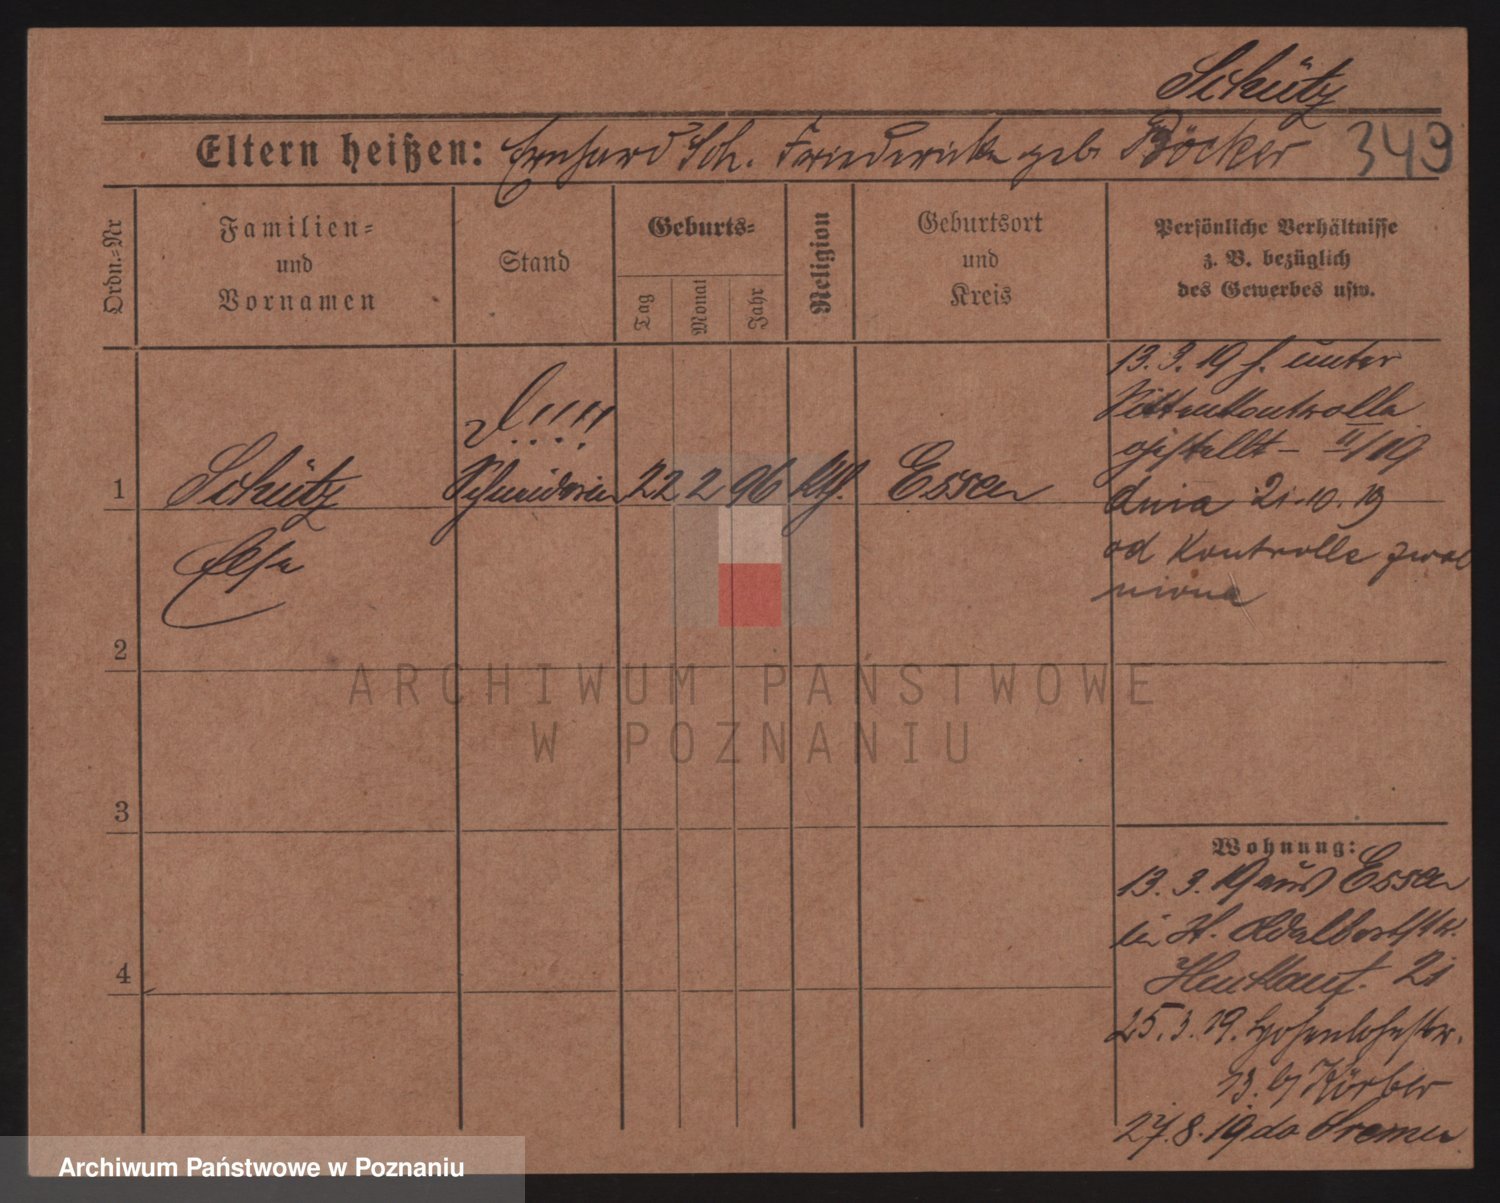 Schütz
Eltern heißen: Ernhard Sch. Friederike geb Böcker 349
Ordn.=Nr
Familien=
und
Vornamen
Stand
Geburts=
Tag
Monat
Jahr
Religion
Geburtsort
und
Kreis
Persönliche Verhältnisse
z. B. bezüglich
des Gewerbes usw.
1
Schütz
Else
!!!!
Schneiderin
22 2 96
Essen
13. 3. 19 f. unter
Sittenkontrolle
gestellt – II/19
dnia 21.10.19
od Kontrolle zwol
niona
2
3
4
Wohnung:
13. 3. 19 aus Essen
in H. Adalbertstr.
21
25. 3. 19. Hohenlohestr.
13. b/ Körber
27. 8. 19 do Bremen
ARCHIWUM PAŃSTWOWE
W POZNANIU
Archiwum Państwowe w Poznaniu